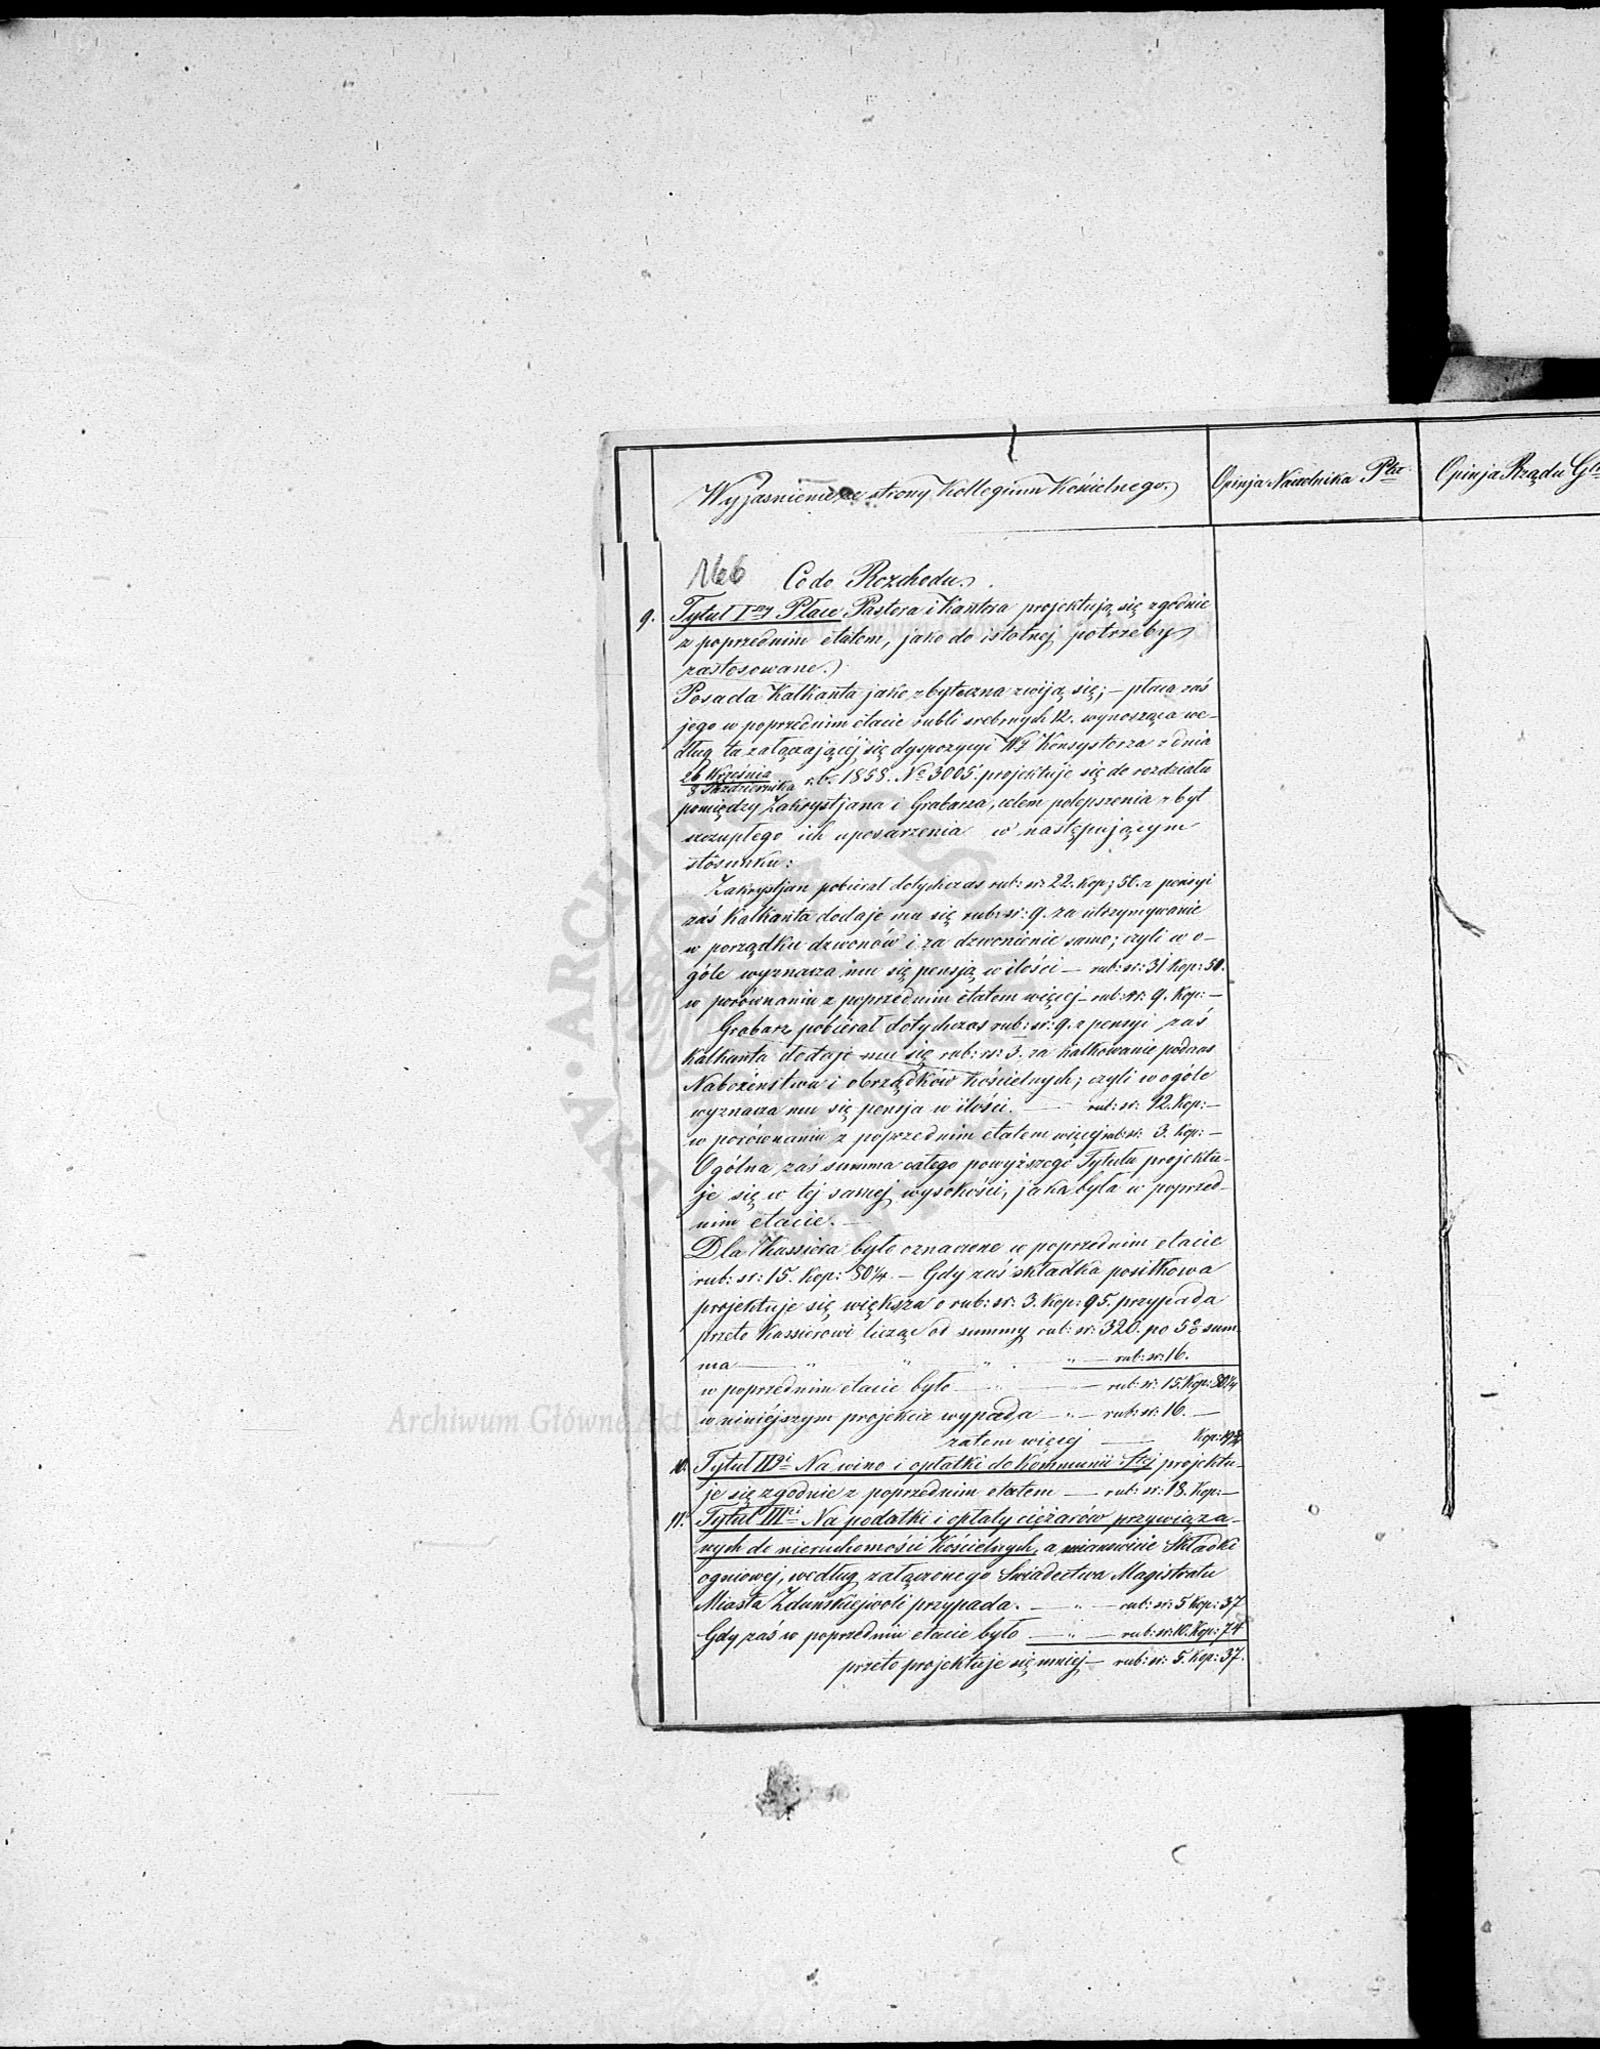 Wyjaśnienie ze strony Kollegium Kościelnego.
Opinja Naczelnika Ptu
Opinja Rządu Gu
166 Co do Rozchodu.
9. Tytuł Iszy Płace Pastora i Kantora projektują się zgodnie
z poprzednim etatem, jako do istotnej potrzeby
zastosowane.
Posada Kalkanta jako zbyteczna zwija się; — płaca zaś
jego w poprzednim etacie rubli srebrnych 12. wynosząca we-
dług tu załączającej się dyspozycyi Konsystorza z dnia
26 Września
8 Października r.b. 1858. No 3005. projektuje się do rozdziału
pomiędzy Zakrystjana i Grabarza, celem polepszenia zbyt
szczupłego ich uposażenia w następującym
stósunku:
Zakrystjan pobierał dotychczas rub: sr: 22. kop: 50. z pensyi
zaś Kalkanta dodaje mu się rub: sr: 9. za utrzymywanie
w porządku dzwonów i za dzwonienie samo; czyli w o-
góle wyznacza mu się pensją w ilości — rub: sr: 31 Kop: 50.
w porównaniu z poprzednim etatem więcej — rub: sr: 9. Kop: —
Grabarz pobierał dotychczas rub: sr: 9. z pensyi zaś
Kalkanta dodaje mu się rub: sr: 3. za kalkowanie podczas
Nabożeństwa i obrządków kościelnych; czyli w ogóle
wyznacza mu się pensja w ilości. — rub: sr: 12. Kop: —
w porównaniu z poprzednim etatem więcej rub: sr: 3. Kop: —
Ogólna zaś summa całego powyższego Tytułu projektu-
je się w tej samej wysokości, jaka była w poprzed-
nim etacie. —
Dla Kassiera było oznaczone w poprzednim etacie
rub: sr: 15. Kop: 80¼. — Gdy zaś składka posiłkowa
projektuje się większa o rub: sr: 3. Kop: 95. przypada
przeto Kassierowi licząc od summy rub: sr: 320. po 5% sum-
ma — " " " " — rub: sr: 16.
w poprzednim etacie było — " — rub: sr: 15. Kop: 80¼
w niniéjszym projekcie wypada — " — rub: sr: 16. —
zatem więcej — Kop: 19¾
10. Tytuł IIgi Na wino i opłatki do Kommunii Stej projektu-
je się zgodnie z poprzednim etatem — rub: sr: 18. Kop: —
11. Tytuł IIIci Na podatki i opłaty ciężarów przywiąza-
nych do nieruchomości Kościelnych, a mianowicie Składki
ogniowej, według załączonego Świadectwa Magistratu
Miasta Zduńskiejwoli przypada. — " — rub: sr: 5 Kop: 37
Gdy zaś w poprzednim etacie było — " — rub: sr: 10. Kop: 74
przeto projektuje się mniej — rub: sr: 5. Kop: 37.
Archiwum Główne Akt Dawnych